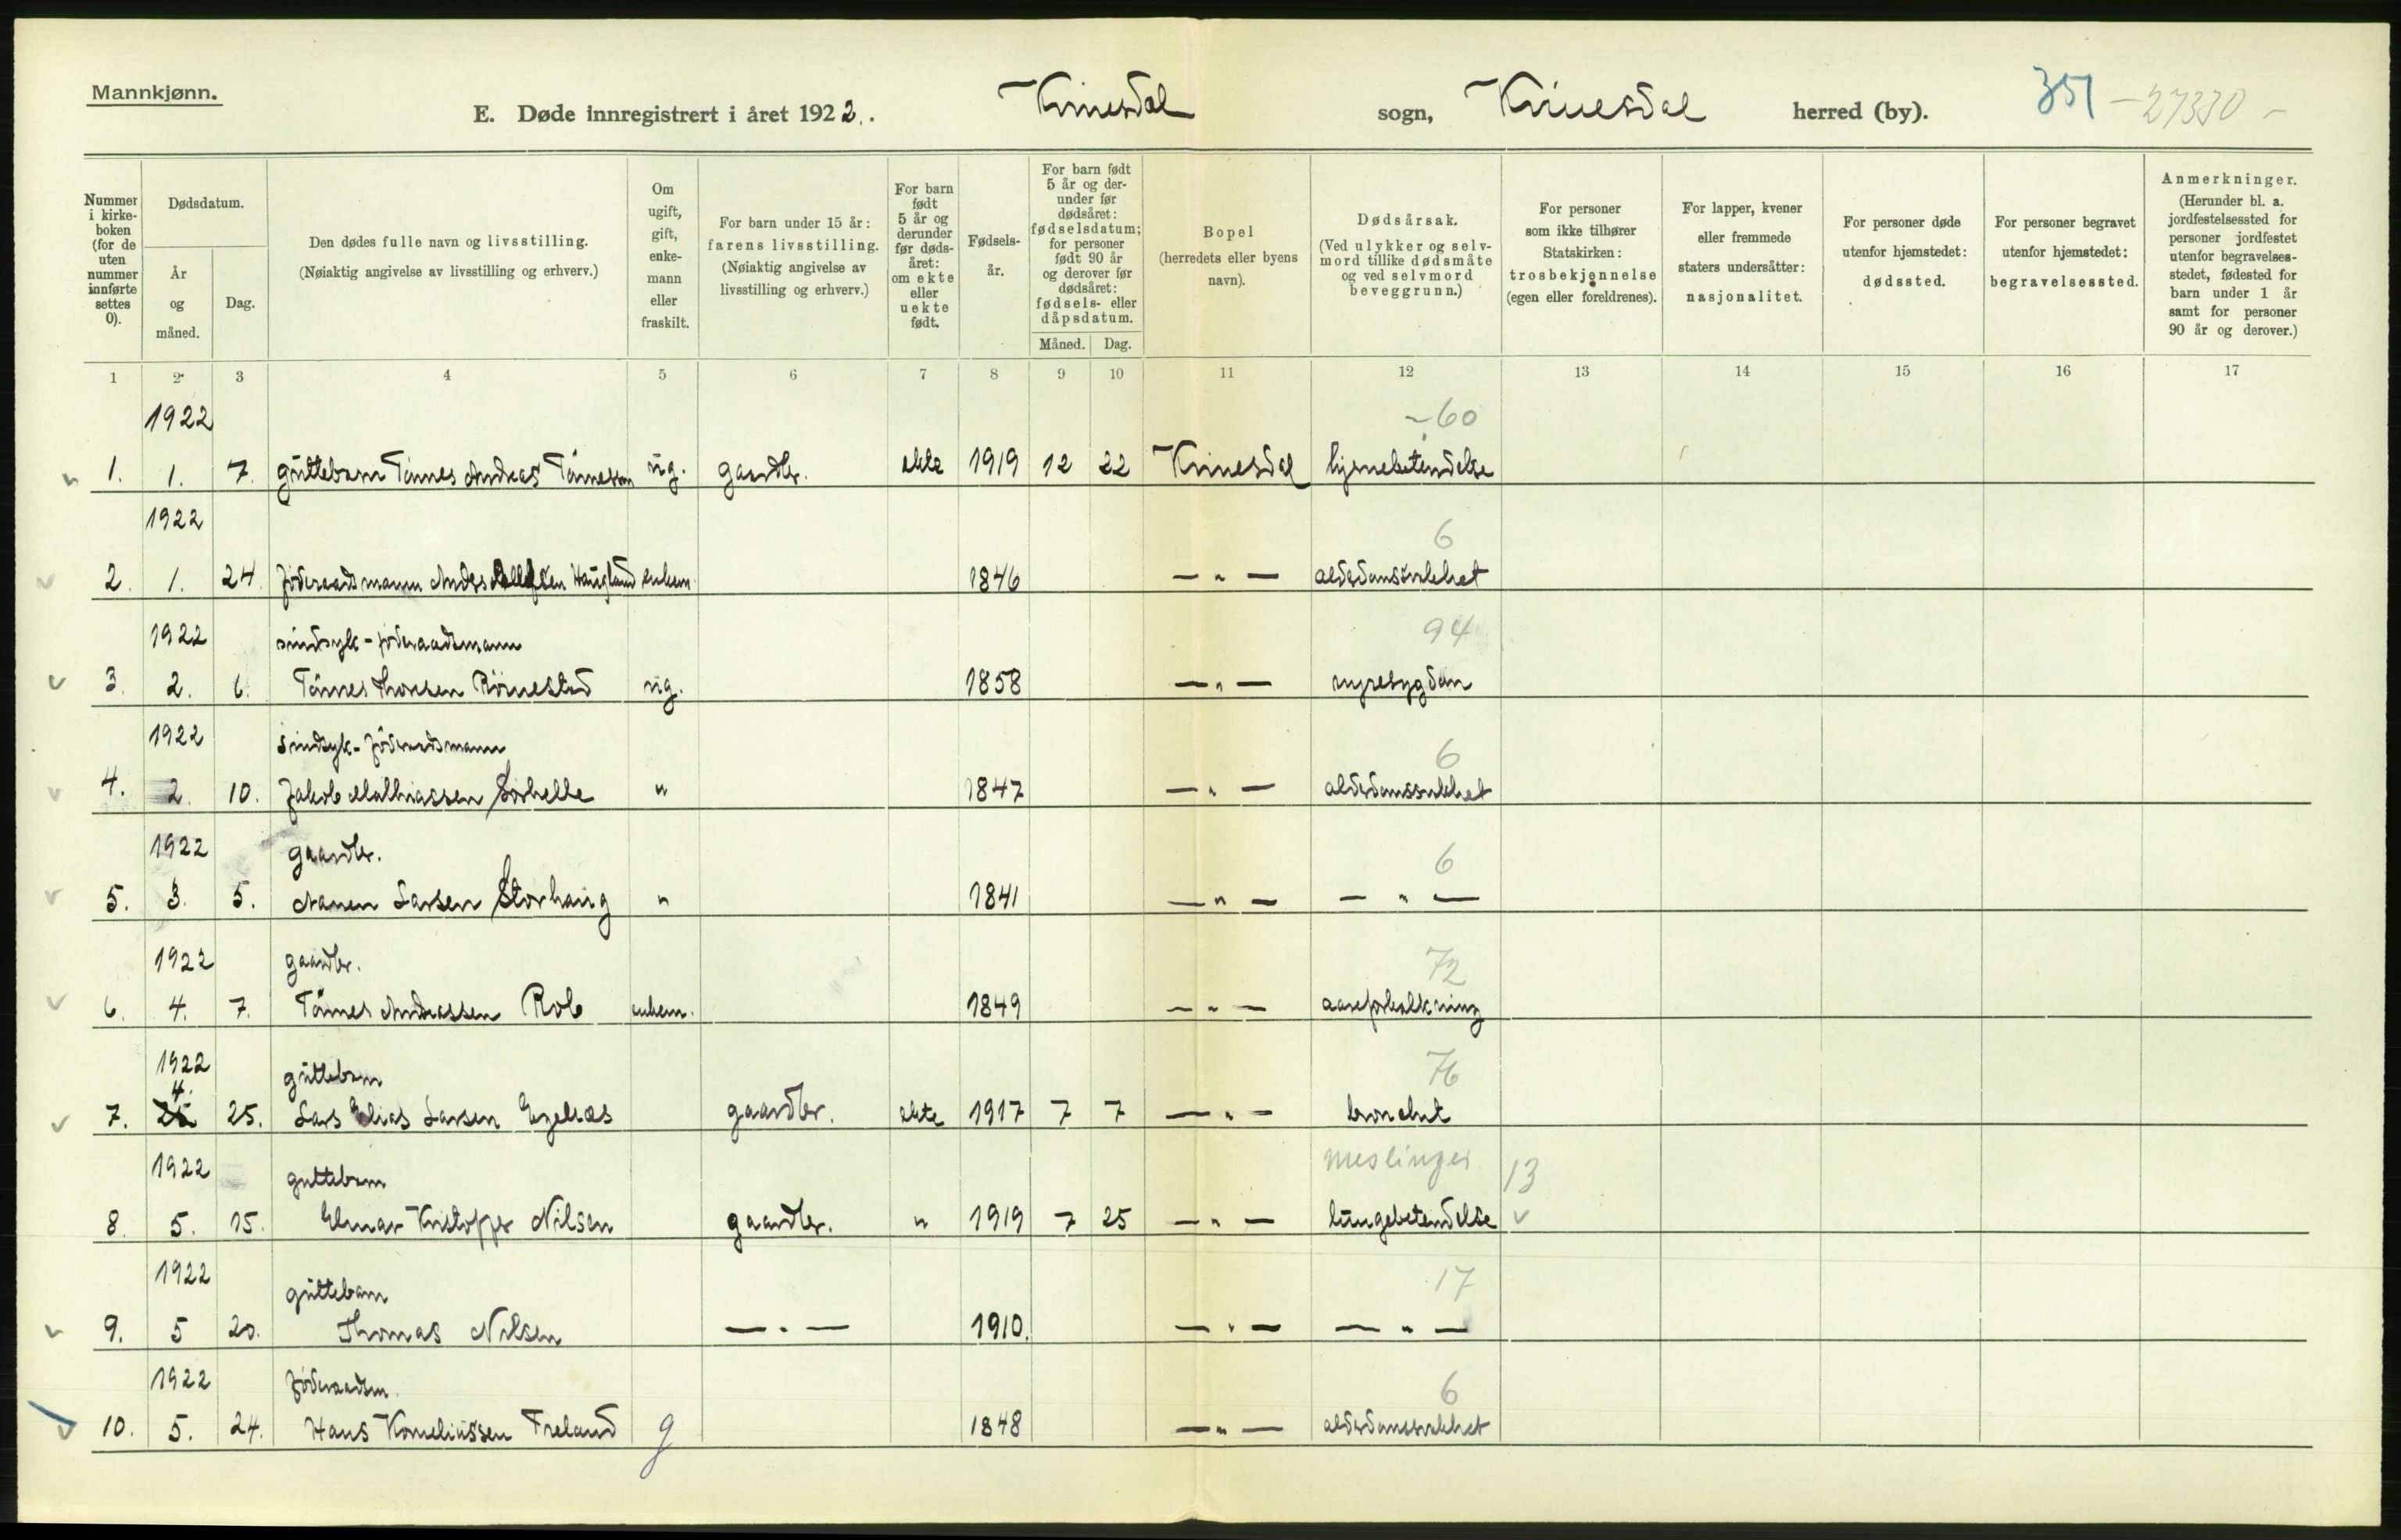 Mannkjønn.
E. Døde innregistrert i året 1922. Kvinesdal sogn, Kvinesdal herred (by). 351 - 27330 -
Nummer i kirkeboken (for de uten nummer innførte settes 0).
Dødsdatum.
År og måned.
Dag.
Den dødes fulle navn og livsstilling.
(Nøiaktig angivelse av livsstilling og erhverv.)
Om ugift, gift, enkemann eller fraskilt.
For barn under 15 år: farens livsstilling.
(Nøiaktig angivelse av livsstilling og erhverv.)
For barn født 5 år og derunder før dødsåret: om ekte eller uekte født.
Fødselsår.
For barn født 5 år og derunder før dødsåret: fødselsdatum; for personer født 90 år og derover før dødsåret: fødsels- eller dåpsdatum.
Måned. Dag.
Bopel
(herredets eller byens navn).
Dødsårsak.
(Ved ulykker og selvmord tillike dødsmåte og ved selvmord beveggrunn.)
For personer som ikke tilhører Statskirken: trosbekjennelse (egen eller foreldrenes).
For lapper, kvener eller fremmede staters undersåtter: nasjonalitet.
For personer døde utenfor hjemstedet: dødssted.
For personer begravet utenfor hjemstedet: begravelsessted.
Anmerkninger.
(Herunder bl. a. jordfestelsessted for personer jordfestet utenfor begravelsesstedet, fødested for barn under 1 år samt for personer 90 år og derover.)
1 2 3 4 5 6 7 8 9 10 11 12 13 14 15 16 17
1922 60
1. 1. 7. guttebarn Tønnes Andreas Tønnesen ug. gaardbr. ekte 1919 12 22 Kvinesdal hjernebetendelse
1922 6
2. 1. 24. føderaadsmann Anders Haugland enkem. 1846 — " — alderdomssvakhet
1922 sindsyk - føderaadsmann 94
3. 2. 6. Tønnes Thorsen Rørnestad ug. 1858 — " — nyresygdom
1922 Sindsyk - føderaadsmann 6
4. 2. 10. Jakob Mathiassen " 1847 — " — alderdomssvakhet
1922 gaardbr. 6
5. 3. 5. Larsen Storhaug " 1841 — " — — " —
1922 gaardbr. 72
6. 4. 7. Tønnes Andreassen enkem. 1849 — " — aareforkalkning
1922 guttebarn 76
7. 4. 25. Lars Elias Larsen gaardbr. ekte 1917 7 7 — " — bronchit
1922 guttebarn meslinger 13
8. 5. 15. Elmar Kristoffer Nilsen gaardbr. " 1919 7 25 — " — lungebetendelse
1922 guttebarn 17
9. 5 20. Thomas Nilsen — " — 1910. — " — — " —
1922 føderaadsm. 6
10. 5. 24. Hans Korneliussen Freland g 1848 — " — alderdomssvakhet